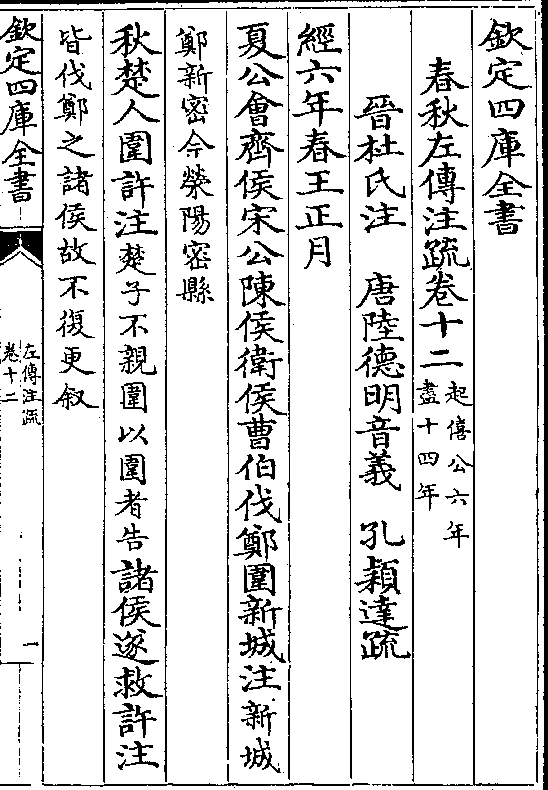 欽定四庫全書
春秋左傳注疏卷十二
起僖公六年
盡十四年
晉杜氏注 唐陸德明音義 孔穎達疏
經六年春王正月
夏公會齊侯宋公陳侯衛侯曹伯伐鄭圍新城注新城
鄭新密今滎陽密縣
秋楚人圍許注楚子不親圍以圍者告諸侯遂救許注
皆伐鄭之諸侯故不復更叙
欽定四庫全書
左傳注疏
卷十二
一